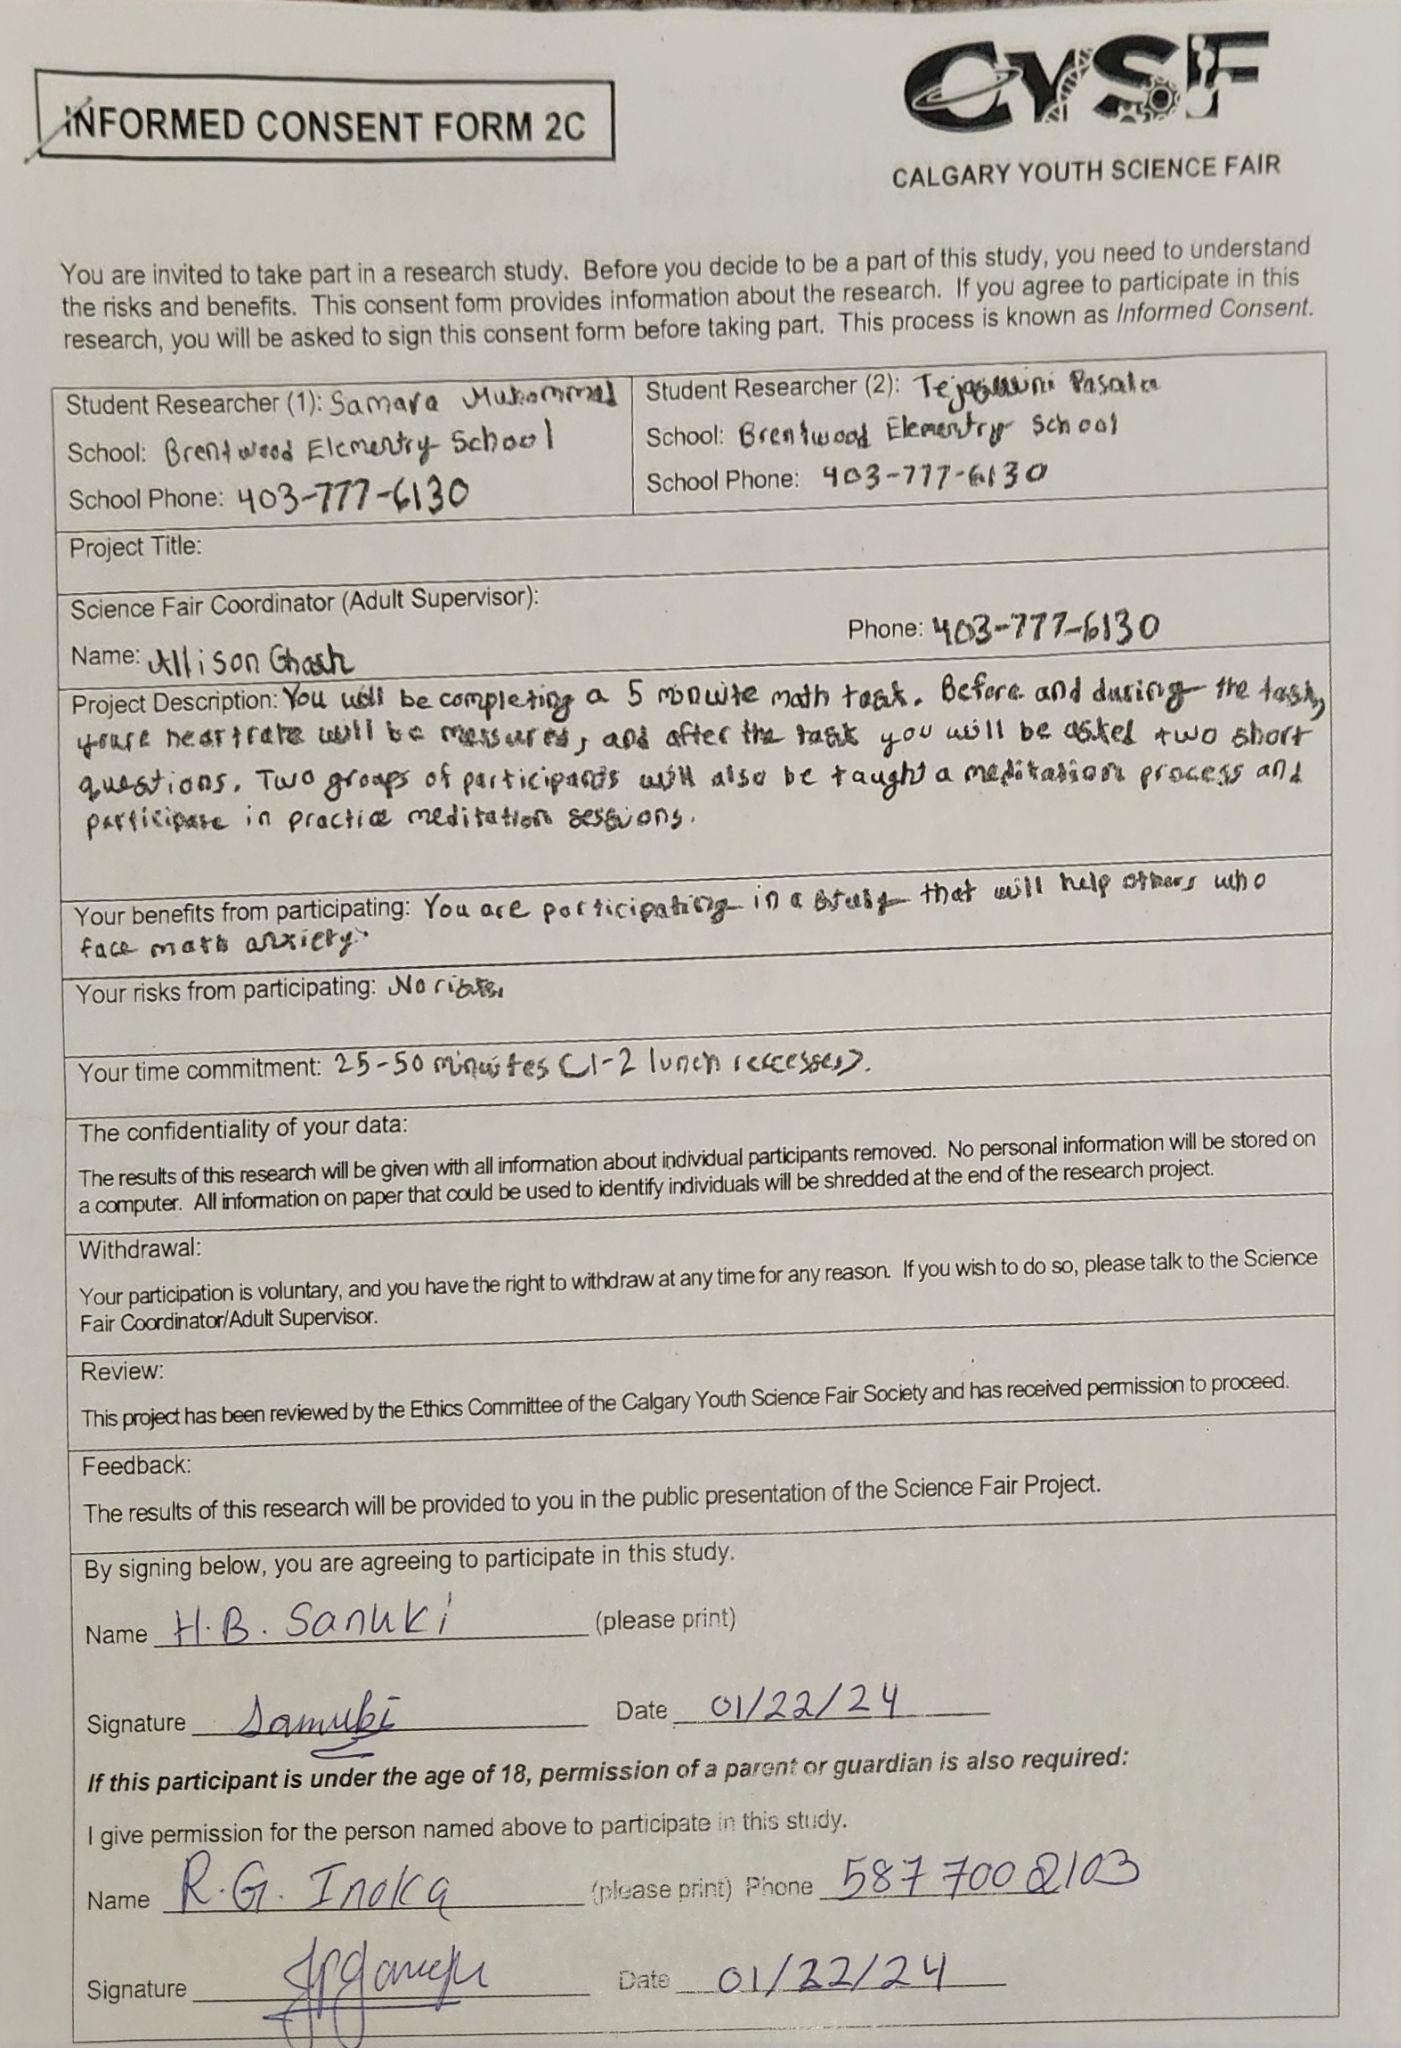 INFORMED CONSENT FORM 2C
CYSF
CALGARY YOUTH SCIENCE FAIR
You are invited to take part in a research study. Before you decide to be a part of this study, you need to understand
the risks and benefits. This consent form provides information about the research. If you agree to participate in this
research, you will be asked to sign this consent form before taking part. This process is known as Informed Consent.
Student Researcher (1): Samara
School: Brentwood Elementry School
School Phone: 403-777-6130
Student Researcher (2):
School: Brentwood Elementry School
School Phone: 403-777-6130
Project Title:
Science Fair Coordinator (Adult Supervisor):
Name: Allison Ghash
Phone: 403-777-6130
Project Description: You will be completing a 5 minuite math task. Before and during the task,
youre heartrate will be messured, and after the task you will be asked two short
questions. Two groups of participants will also be taught a meditation process and
participate in practice meditation sessions.
Your benefits from participating: You are participating in a study that will help others who
face math anxiety.
Your risks from participating: No risks.
Your time commitment: 25-50 minuites (1-2 lunch reccesses).
The confidentiality of your data:
The results of this research will be given with all information about individual participants removed. No personal information will be stored on
a computer. All information on paper that could be used to identify individuals will be shredded at the end of the research project.
Withdrawal:
Your participation is voluntary, and you have the right to withdraw at any time for any reason. If you wish to do so, please talk to the Science
Fair Coordinator/Adult Supervisor.
Review:
This project has been reviewed by the Ethics Committee of the Calgary Youth Science Fair Society and has received permission to proceed.
Feedback:
The results of this research will be provided to you in the public presentation of the Science Fair Project.
By signing below, you are agreeing to participate in this study.
Name H.B. Sanuki (please print)
Signature Sanuki Date 01/22/24
If this participant is under the age of 18, permission of a parent or guardian is also required:
I give permission for the person named above to participate in this study.
Name R.G. Inoka (please print) Phone 587 700 2103
Signature Date 01/22/24